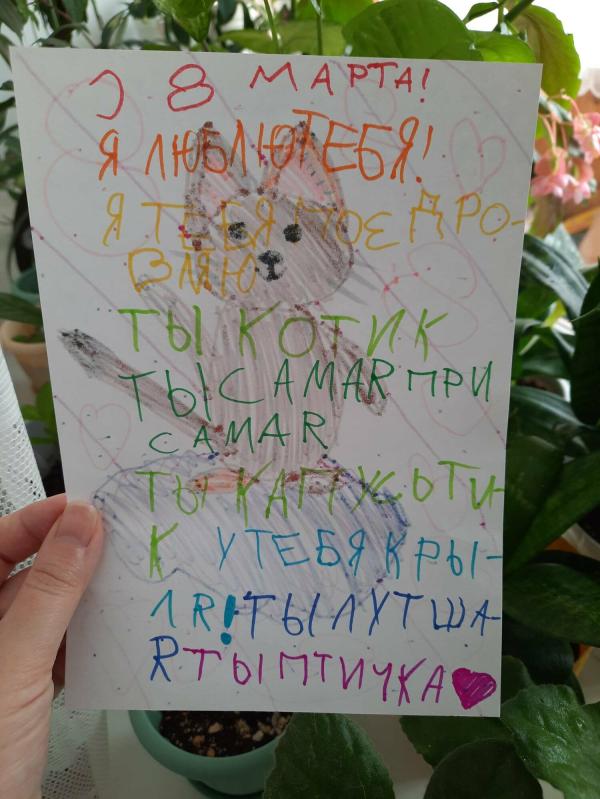 С 8 МАРТА!
Я ЛЮБЛЮ ТЕБЯ!
Я ТЕБЯ ПОЕДРО-
ВЛЯЮ
ТЫ КОТИК
ТЫ САМАR ПРИ
САМАR
ТЫ КАПУСЬТИ-
К У ТЕБЯ КРЫ-
ЛR! ТЫ ЛУТША-
R ТЫ ПТИЧКА